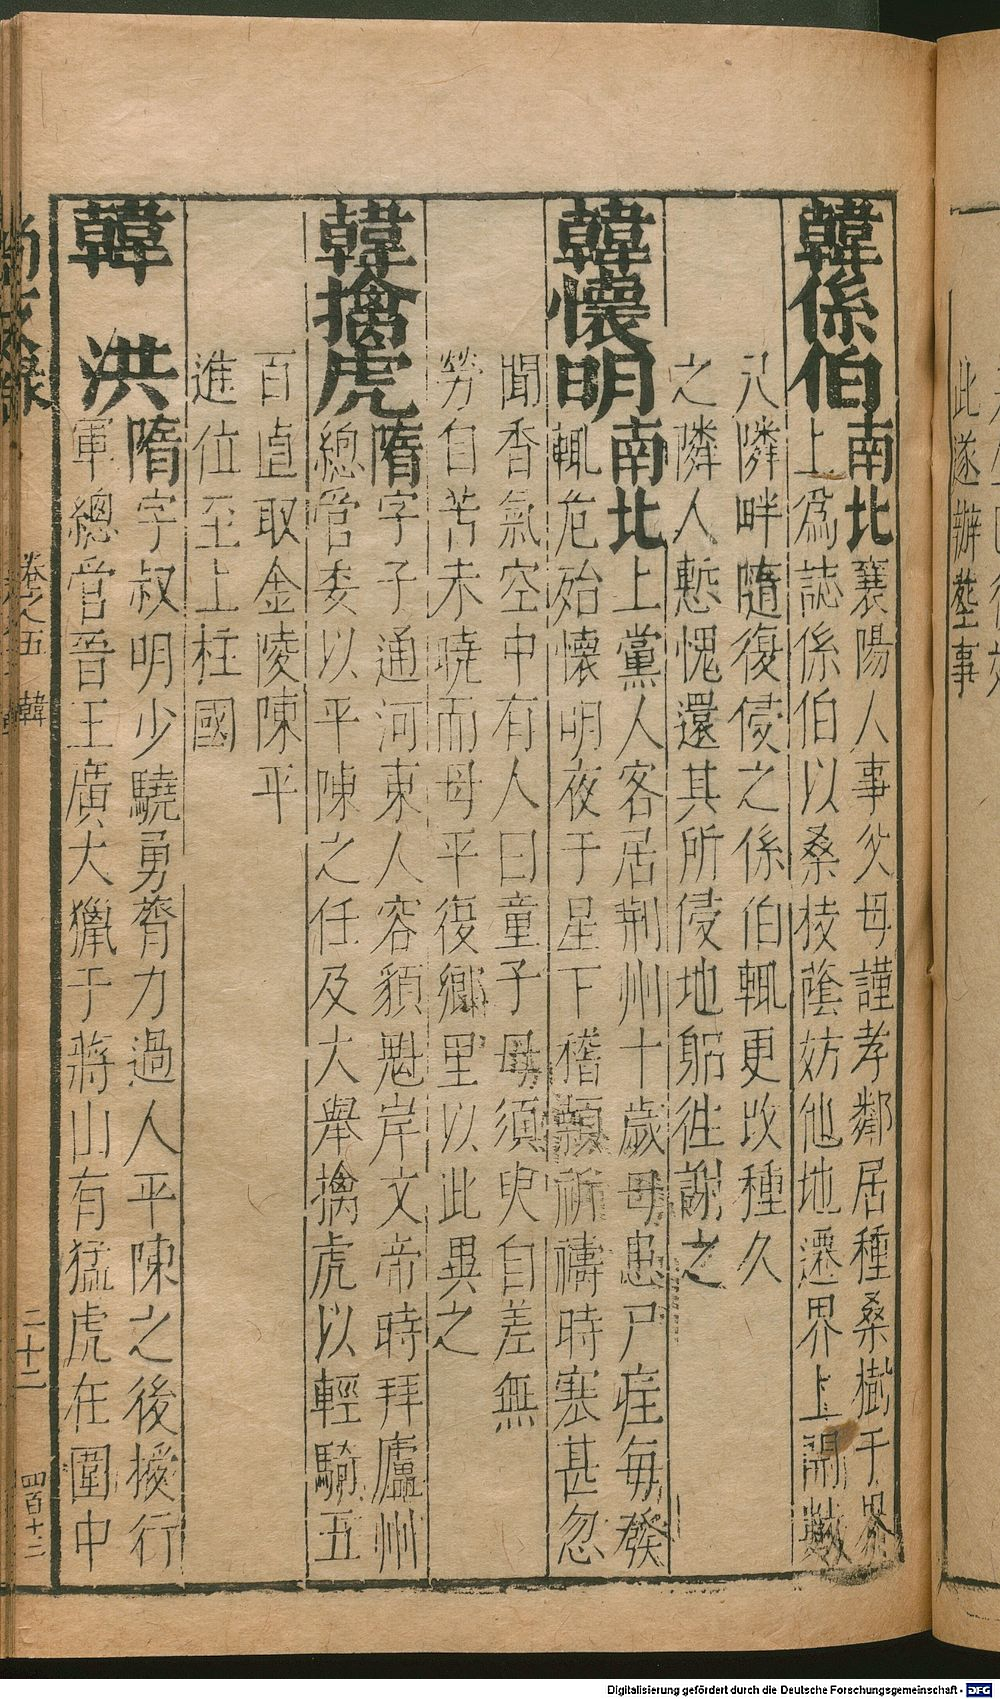 此遂辦塟事
韓係伯南北襄陽人事父母謹孝鄰居種桑樹于界
上爲誌係伯以桑枝蔭妨他地遷界上開數
尺隣畔隨復侵之係伯輒更改種久
之隣人慙愧還其所侵地躬徃謝之
韓懷明南北上黨人客居荆州十歲母患尸疰毎發
輒危殆懷明夜于星下稽顙祈禱時寒甚忽
聞香氣空中有人曰童子母須臾自差無
勞自苦未曉而母平復鄉里以此異之
韓擒虎隋字子通河東人容貌魁岸文帝時拜廬州
總官委以平陳之任及大舉擒虎以輕騎五
百直取金陵陳平
進位至上柱國
韓 洪隋字叔明少驍勇膂力過人平陳之後授行
軍總官晉王廣大獵于蔣山有猛虎在圍中
卷之五 韓 二十二 四百十二
Digitalisierung gefördert durch die Deutsche Forschungsgemeinschaft - DFG